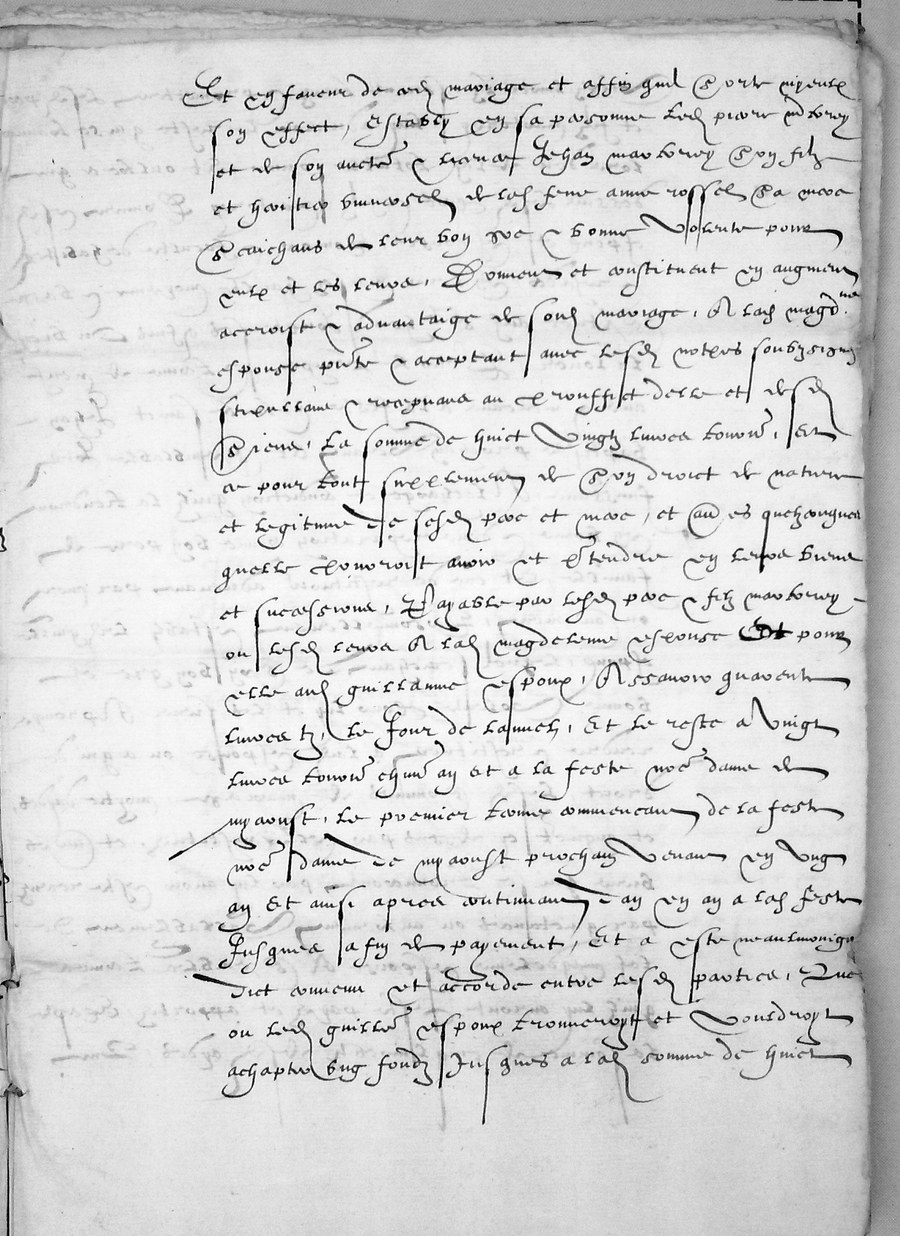 Et en faveur de ced mariage et affin quil sorte myeulx
son effect, Estably en sa personne led pierre
et de son aucte & licence Jehan marterey son filz
et heritier universel de lad feue anne rossel sa mere
Saichans de leur bon gre & bonne volente pour
eulx et les leurs, Donnent et constituent en augment
accroist & advantaige de sond mariage, A lad magdne
espouse pnte & acceptant avec lesd notres soubzsignes
stipullans & recepvans au prouffict delle et desd
Siens, La somme de huict vingtz livres tourn, Et
ce pour tout supplement de son droict de nature
et legitime de sesd pere et mere, et aul es quelzconques
quelle pourroit avoir et ptendre en leurs biens
et successions, Payable par lesd pere & filz marterey
ou lesd leurs A lad magdeleine espouse Et pour
elle aud guillaume espoux, Assavoir quarente
livres tz, Le Jour de la, Et le reste a vingt
livres tourn chun an et a la feste nre dame de
myaoust, Le premier terme commencant de la feste
nre dame de myaoust prochain venant en ung
an Et ainsi apres continuant dan en an a lad feste
Jusques a fin de payement, Et a este neaulmoingz
dict convenu et accorde entre lesd parties, Que
ou led guille espoux trouveroyt et vouldroyt
achapter ung fondz Jusques a lad somme de huict